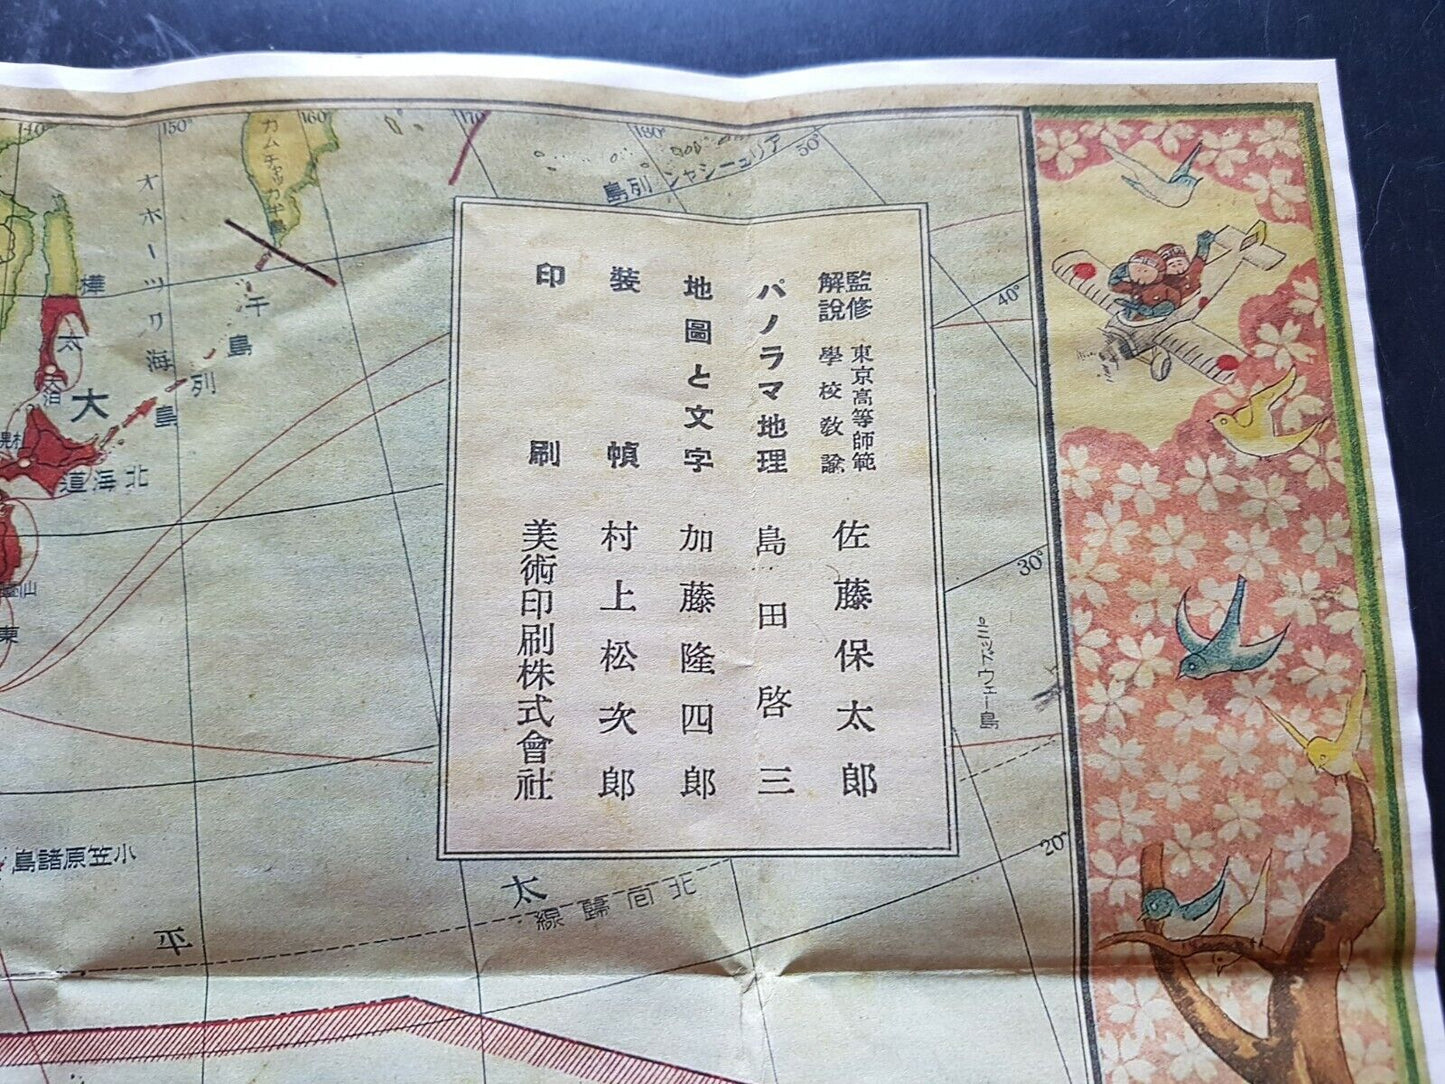 監修
解說
東京高等師範
學校教諭
佐藤保太郎
パノラマ地理 島田啓三
地圖と文字 加藤隆四郎
裝幀 村上松次郎
印刷 美術印刷株式會社
150°
160°
170°
180°
50°
40°
30°
20°
カムチャッカ半島
島列ンャシーュリア
オホーツク海
千島列島
樺太
大泊
大
北海道
ミッドウェー島
小笠原諸島
太
平
北回歸線
東
山